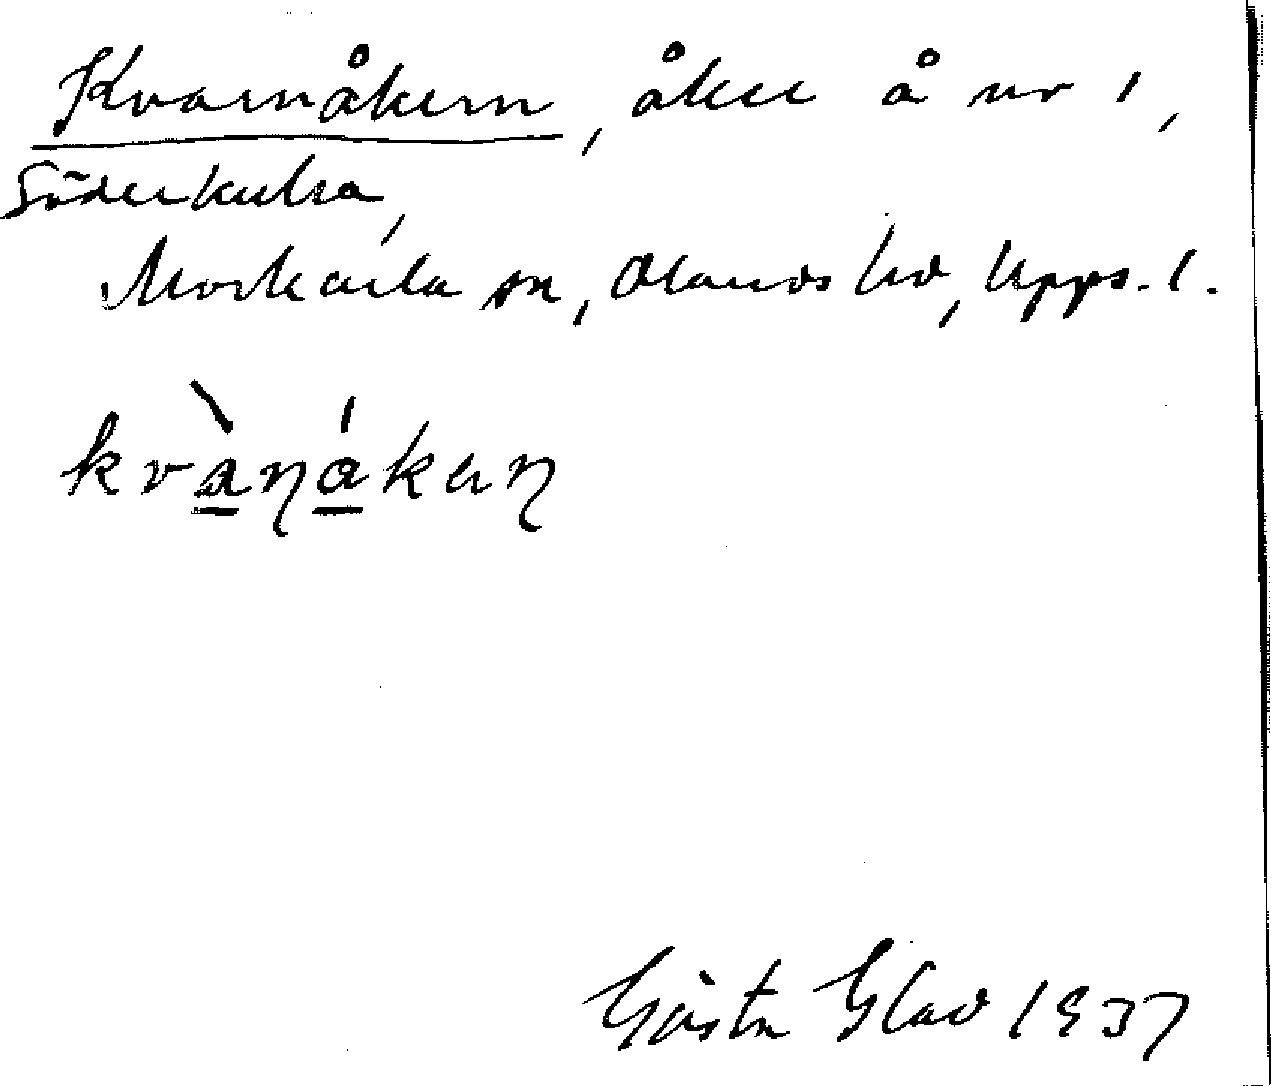 Kvarnåkern, åker å nr 1,
Söderkulsa,
Morkarla sn, Olands hd, Upps. l.
kvànákaɳ
Gösta Glad 1937